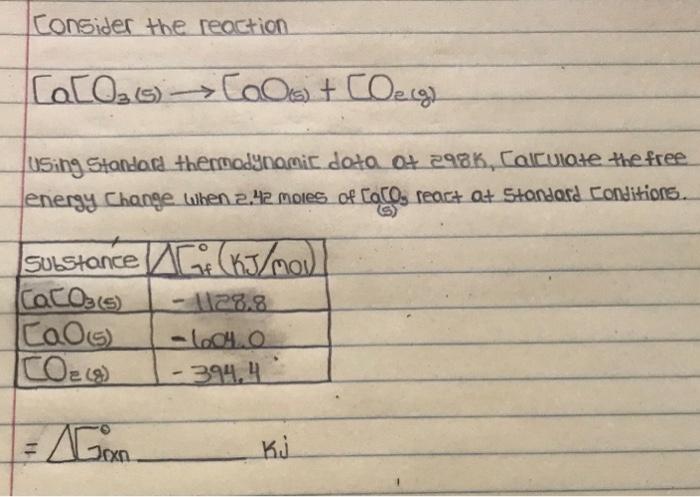 Consider the reaction
CaCO3(s) → CaO(s) + CO2(g)
Using standard thermodynamic data at 298K, Calculate the free
energy Change when 2.42 moles of CaCO3(s) react at Standard Conditions.
Substance ΔG°f (KJ/mol)
CaCO3(s) -1128.8
CaO(s) -604.0
CO2(g) -394.4
= ΔG°rxn ________ Kj